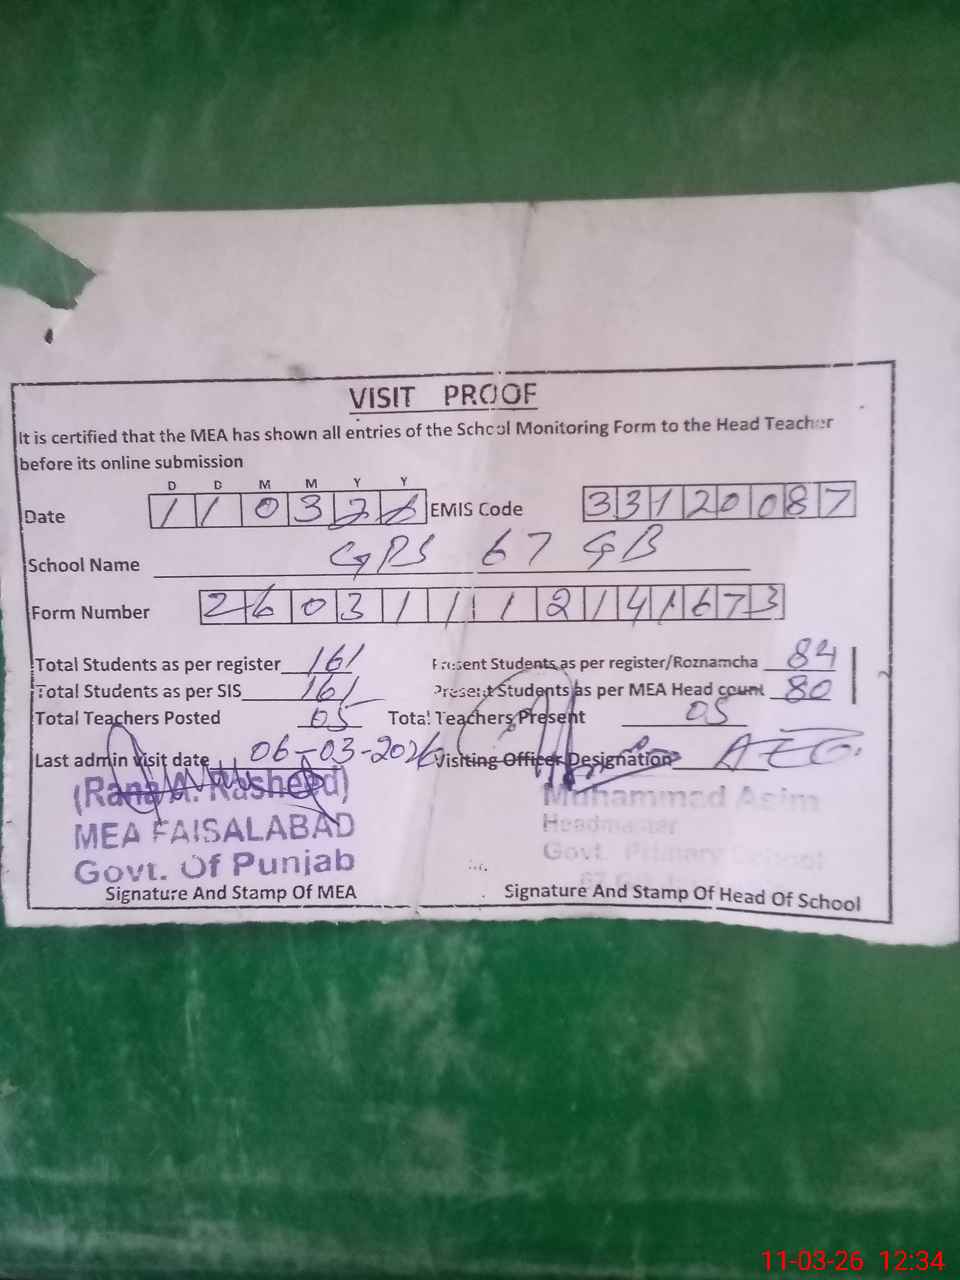 VISIT PROOF
It is certified that the MEA has shown all entries of the School Monitoring Form to the Head Teacher
before its online submission
D D M M Y Y
Date 11 03 26 EMIS Code 33120087
School Name GPS 67 GB
Form Number 26031112141673
Total Students as per register 161 Present Students as per register/Roznamcha 84
Total Students as per SIS 161 Present Students as per MEA Head count 80
Total Teachers Posted 05 Total Teachers Present 05
Last admin visit date 06-03-2026 Visiting Officer Designation AEO.
(Rana A. Rasheed) Muhammad Asim
MEA FAISALABAD Headmaster
Govt. Of Punjab Govt. Primary School
Signature And Stamp Of MEA Signature And Stamp Of Head Of School
11-03-26 12:34